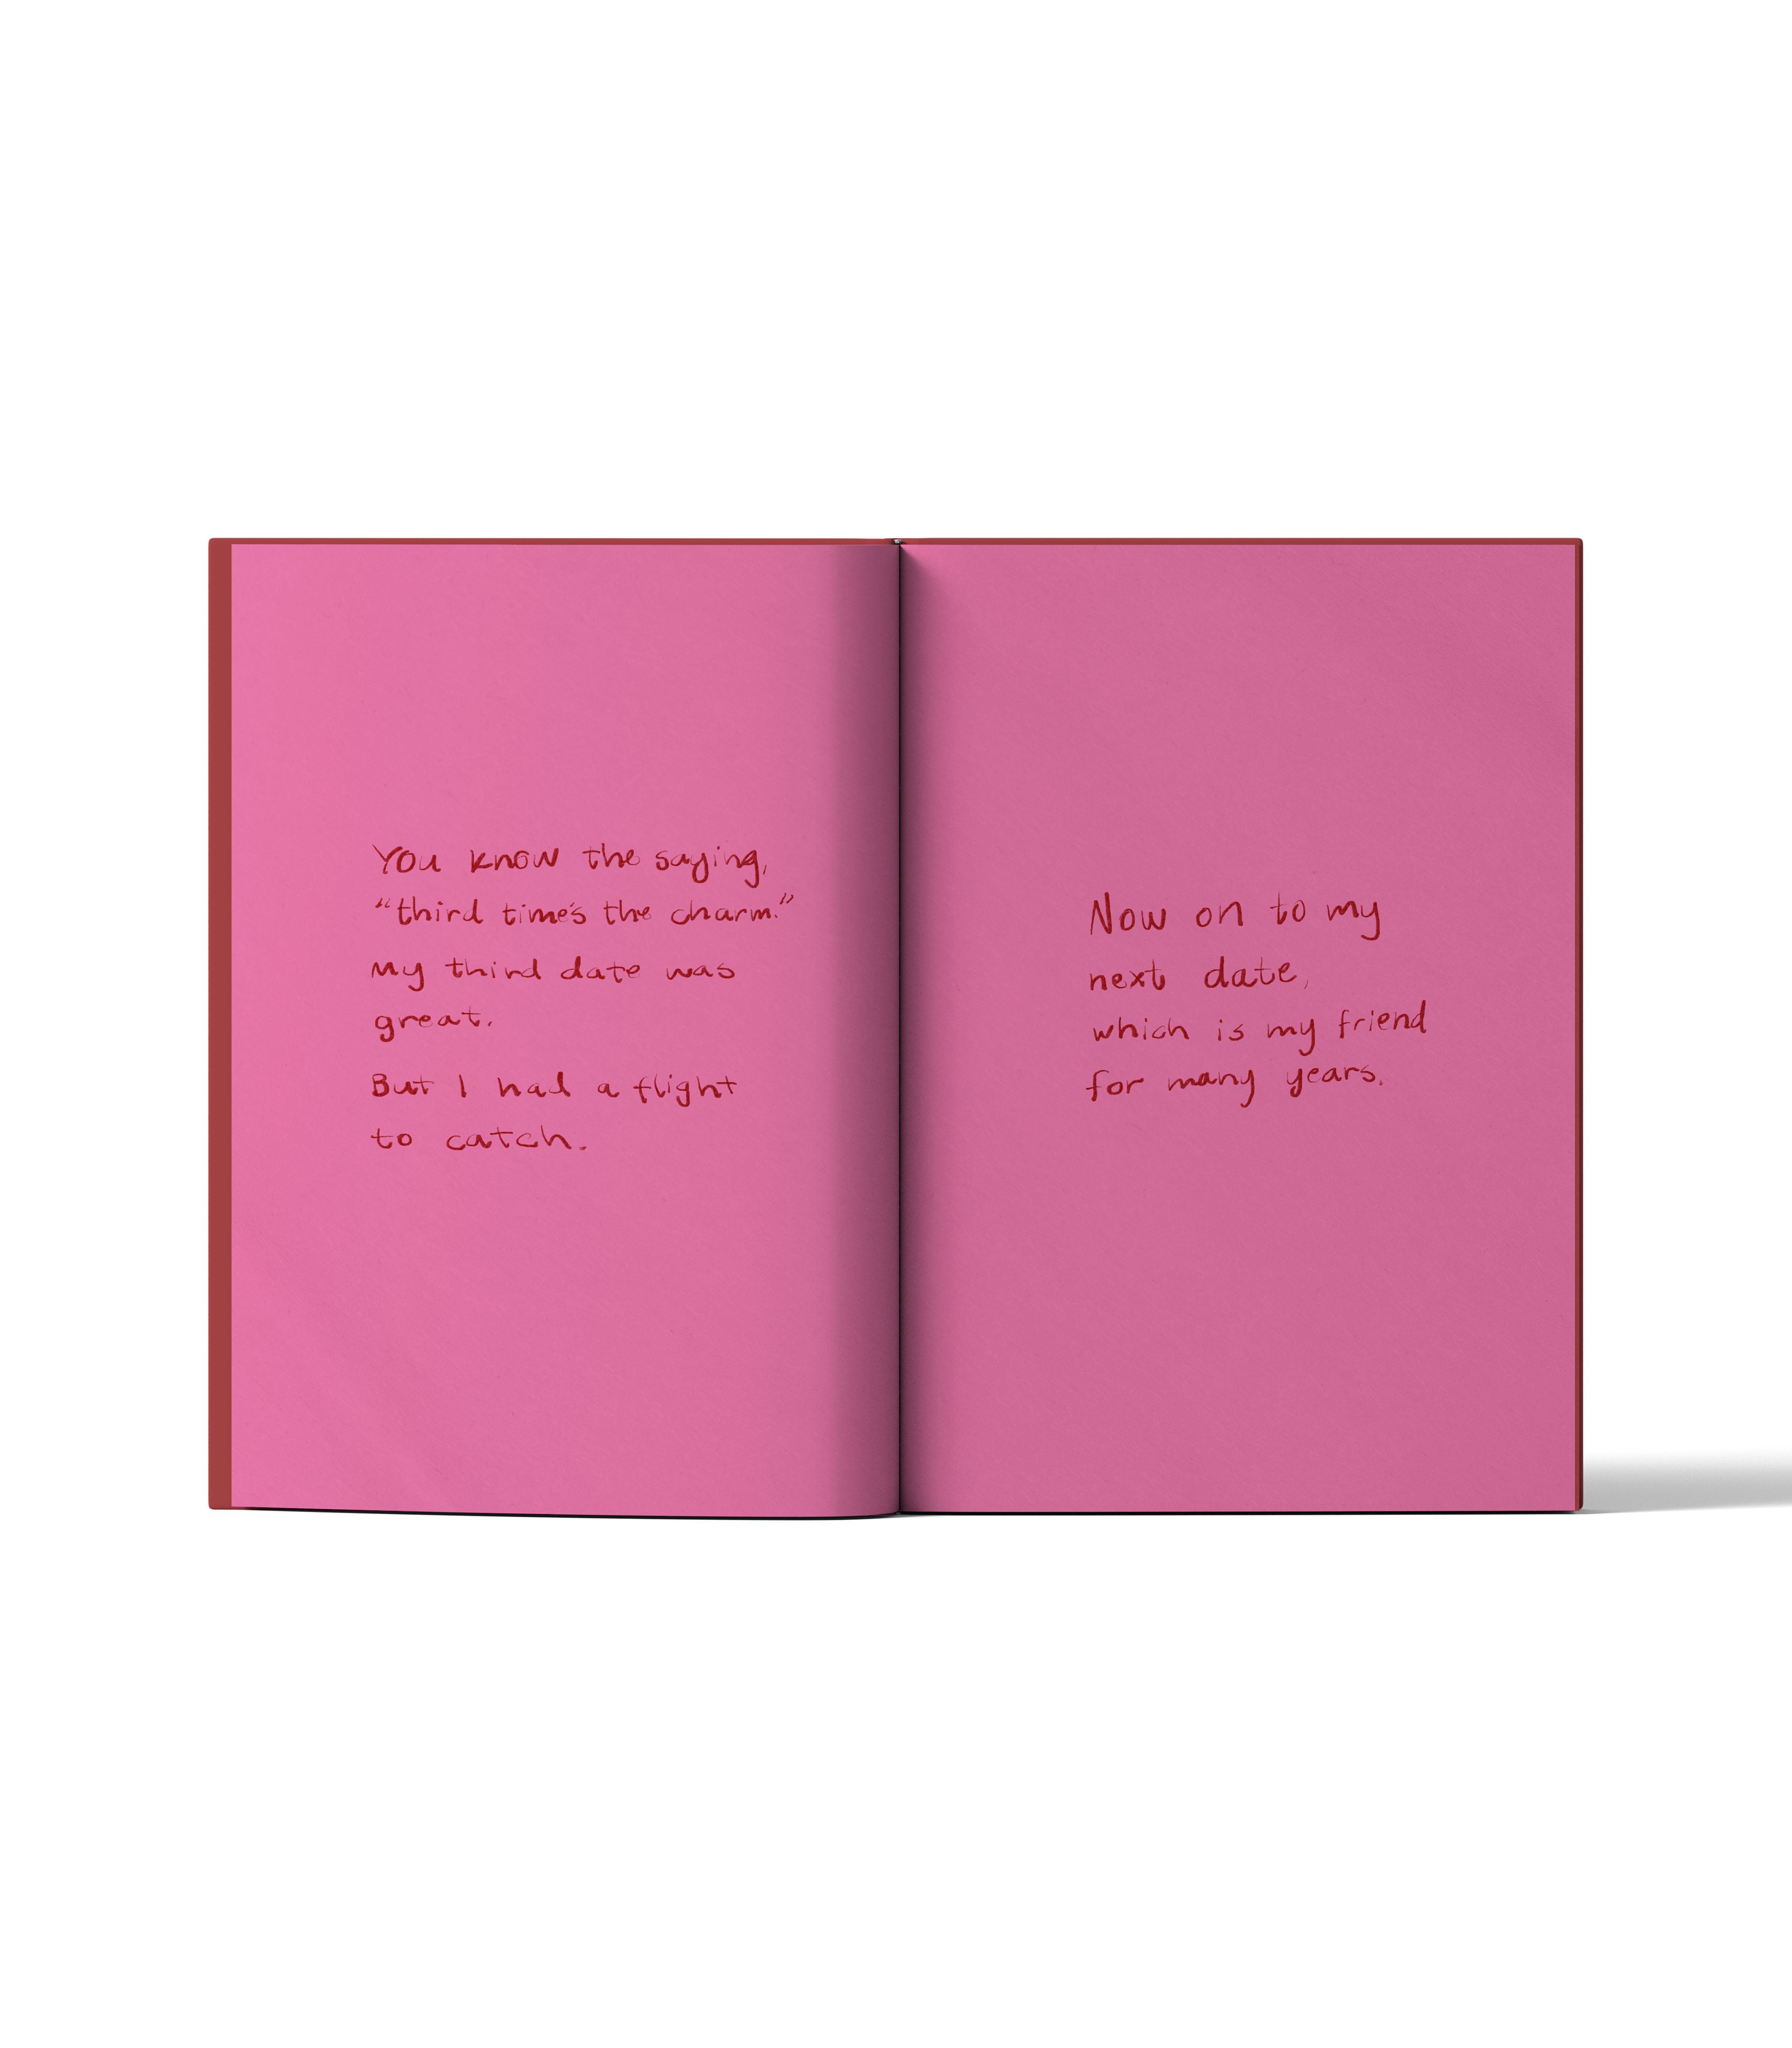 You know the saying,
“third time's the charm.”
My third date was
great.
But I had a flight
to catch.
Now on to my
next date,
which is my friend
for many years.